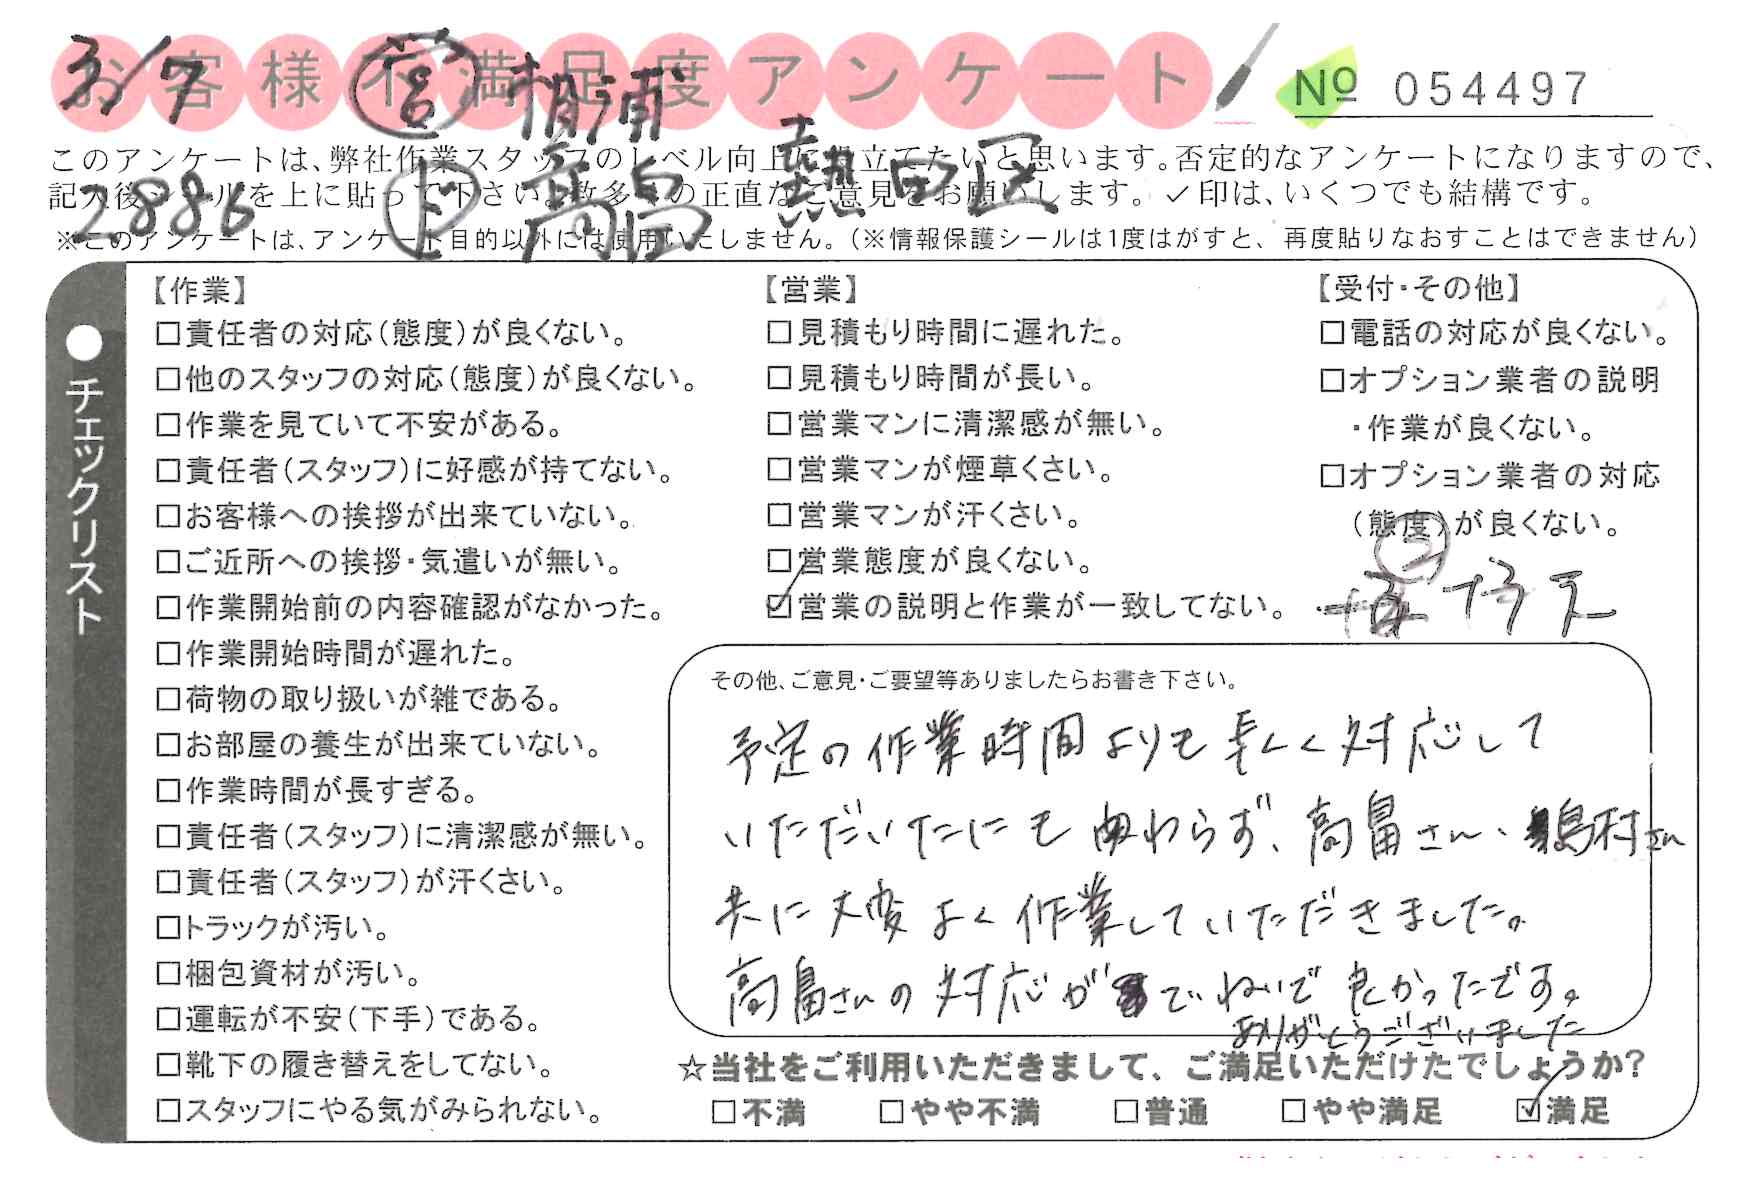 お客様不満足度アンケート
3/7 営 相浦
№ 054497
このアンケートは、弊社作業スタッフのレベル向上に役立てたいと思います。否定的なアンケートになりますので、
記入後シールを上に貼って下さい。数多くの正直なご意見をお願いします。✓印は、いくつでも結構です。
2886 高畠 熱田区
※このアンケートは、アンケート目的以外には使用いたしません。（※情報保護シールは1度はがすと、再度貼りなおすことはできません）
●チェックリスト
【作業】
□責任者の対応（態度）が良くない。
□他のスタッフの対応（態度）が良くない。
□作業を見ていて不安がある。
□責任者（スタッフ）に好感が持てない。
□お客様への挨拶が出来ていない。
□ご近所への挨拶・気遣いが無い。
□作業開始前の内容確認がなかった。
□作業開始時間が遅れた。
□荷物の取り扱いが雑である。
□お部屋の養生が出来ていない。
□作業時間が長すぎる。
□責任者（スタッフ）に清潔感が無い。
□責任者（スタッフ）が汗くさい。
□トラックが汚い。
□梱包資材が汚い。
□運転が不安（下手）である。
□靴下の履き替えをしてない。
□スタッフにやる気がみられない。
【営業】
□見積もり時間に遅れた。
□見積もり時間が長い。
□営業マンに清潔感が無い。
□営業マンが煙草くさい。
□営業マンが汗くさい。
□営業態度が良くない。
☑営業の説明と作業が一致してない。
【受付・その他】
□電話の対応が良くない。
□オプション業者の説明
・作業が良くない。
□オプション業者の対応
（態度）が良くない。
その他、ご意見・ご要望等ありましたらお書き下さい。
予定の作業時間よりも早くく対応して
いただいたにも関わらず、高畠さん、嶋村さん
共に大変よく作業していただきました。
高畠さんの対応がていねいで良かったです。
ありがとうございました
☆当社をご利用いただきまして、ご満足いただけたでしょうか?
□不満 □やや不満 □普通 □やや満足 ☑満足